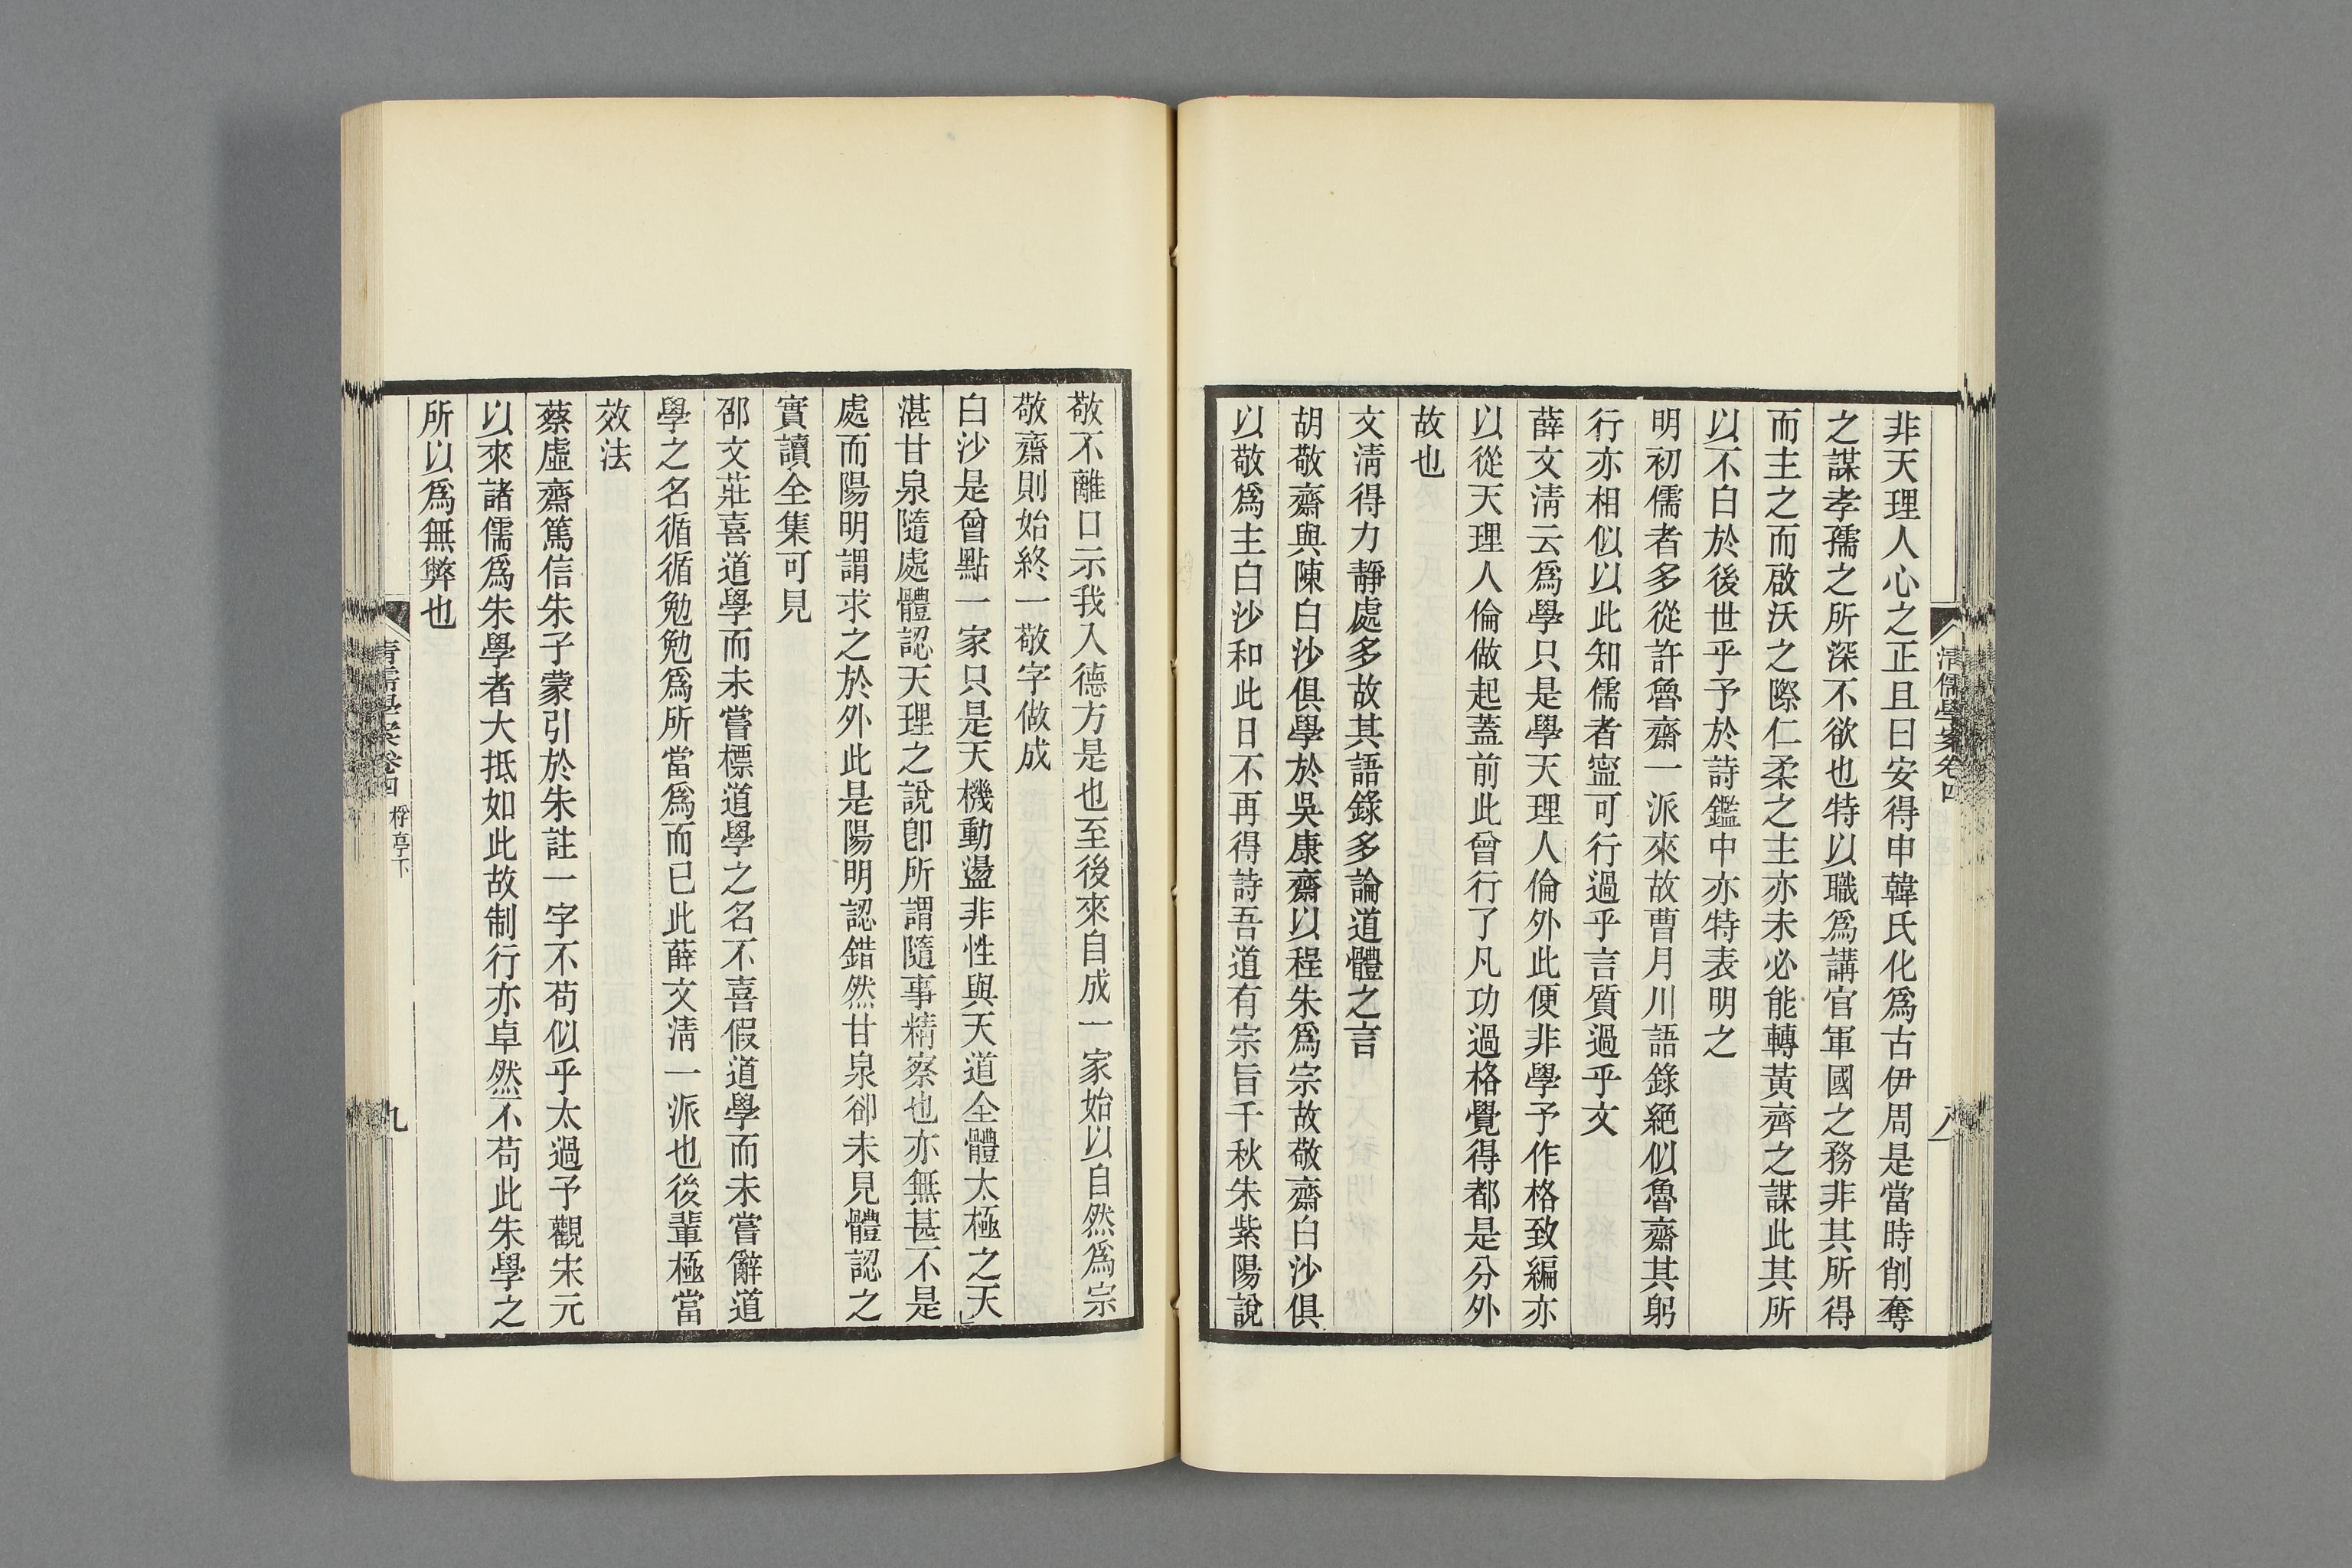 清儒學案卷四
八
非天理人心之正且曰安得申韓氏化爲古伊周是當時削奪
之謀孝孺之所深不欲也特以職爲講官軍國之務非其所得
而主之而啟沃之際仁柔之主亦未必能轉黃齊之謀此其所
以不白於後世乎予於詩鑑中亦特表明之
明初儒者多從許魯齋一派來故曹月川語錄絕似魯齋其躬
行亦相似以此知儒者寍可行過乎言質過乎文
薛文淸云爲學只是學天理人倫外此便非學予作格致編亦
以從天理人倫做起蓋前此曾行了凡功過格覺得都是分外
故也
文淸得力靜處多故其語錄多論道體之言
胡敬齋與陳白沙俱學於吳康齋以程朱爲宗故敬齋白沙俱
以敬爲主白沙和此日不再得詩吾道有宗旨千秋朱紫陽說
敬不離口示我入德方是也至後來自成一家始以自然爲宗
敬齋則始終一敬字做成
白沙是曾點一家只是天機動盪非性與天道全體太極之天
湛甘泉隨處體認天理之說卽所謂隨事精察也亦無甚不是
處而陽明謂求之於外此是陽明認錯然甘泉卻未見體認之
實讀全集可見
邵文莊喜道學而未嘗標道學之名不喜假道學而未嘗辭道
學之名循循勉勉爲所當爲而已此薛文淸一派也後輩極當
效法
蔡虛齋篤信朱子蒙引於朱註一字不苟似乎太過予觀宋元
以來諸儒爲朱學者大抵如此故制行亦卓然不苟此朱學之
所以爲無弊也
清儒學案卷四 桴亭下
九